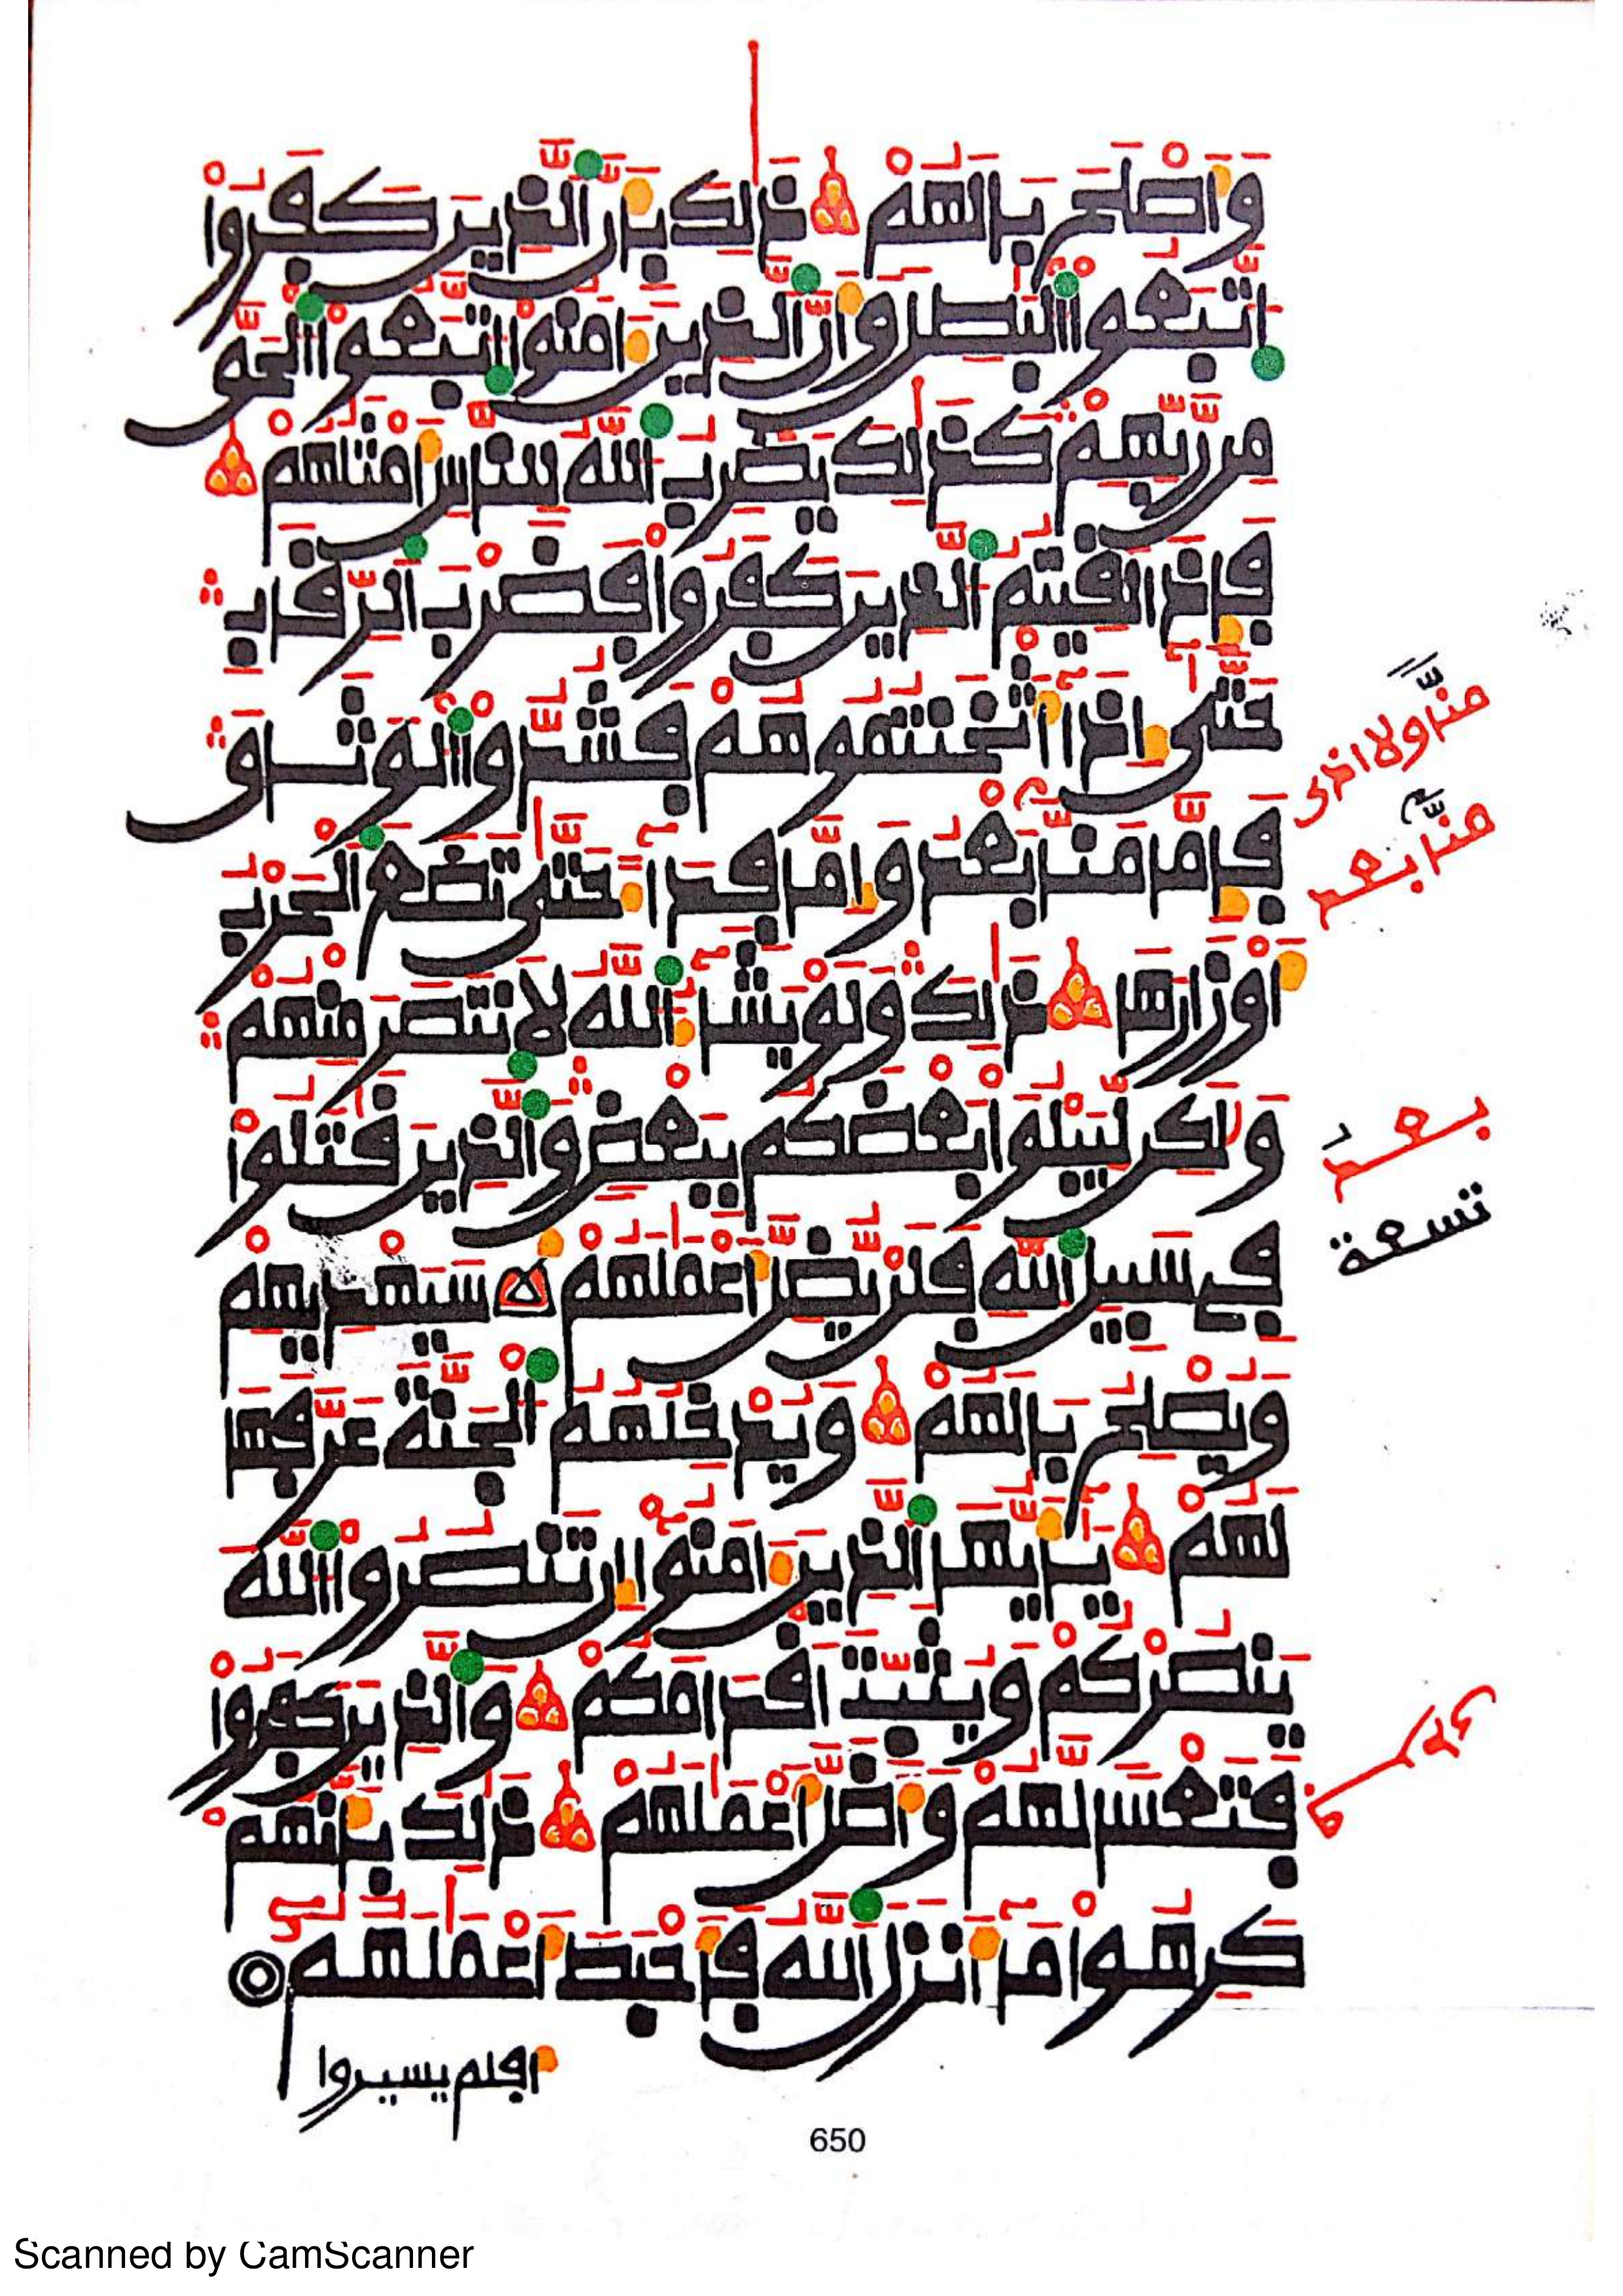 وَأَصْلَحَ بَالَهُمْ ذَٰلِكَ بِأَنَّ ٱلَّذِينَ كَفَرُوا۟
ٱتَّبَعُوا۟ ٱلْبَٰطِلَ وَأَنَّ ٱلَّذِينَ ءَامَنُوا۟ ٱتَّبَعُوا۟ ٱلْحَقَّ
مِن رَّبِّهِمْ كَذَٰلِكَ يَضْرِبُ ٱللَّهُ لِلنَّاسِ أَمْثَٰلَهُمْ
فَإِذَا لَقِيتُمُ ٱلَّذِينَ كَفَرُوا۟ فَضَرْبَ ٱلرِّقَابِ
حَتَّىٰٓ إِذَآ أَثْخَنتُمُوهُمْ فَشُدُّوا۟ ٱلْوَثَاقَ
فَإِمَّا مَنًّۢا بَعْدُ وَإِمَّا فِدَآءً حَتَّىٰ تَضَعَ ٱلْحَرْبُ
أَوْزَارَهَا ذَٰلِكَ وَلَوْ يَشَآءُ ٱللَّهُ لَٱنتَصَرَ مِنْهُمْ
وَلَٰكِن لِّيَبْلُوَا۟ بَعْضَكُم بِبَعْضٍ وَٱلَّذِينَ قَٰتَلُوا۟
فِى سَبِيلِ ٱللَّهِ فَلَن يُضِلَّ أَعْمَٰلَهُمْ سَيَهْدِيهِمْ
وَيُصْلِحُ بَالَهُمْ وَيُدْخِلُهُمُ ٱلْجَنَّةَ عَرَّفَهَا
لَهُمْ يَٰٓأَيُّهَا ٱلَّذِينَ ءَامَنُوٓا۟ إِن تَنصُرُوا۟ ٱللَّهَ
يَنصُرْكُمْ وَيُثَبِّتْ أَقْدَامَكُمْ وَٱلَّذِينَ كَفَرُوا۟
فَتَعْسًا لَّهُمْ وَأَضَلَّ أَعْمَٰلَهُمْ ذَٰلِكَ بِأَنَّهُمْ
كَرِهُوا۟ مَآ أَنزَلَ ٱللَّهُ فَأَحْبَطَ أَعْمَٰلَهُمْ
أفلم يسيروا
منا ولا اخرى
منا بعد
بعد
تسعة
650
Scanned by CamScanner